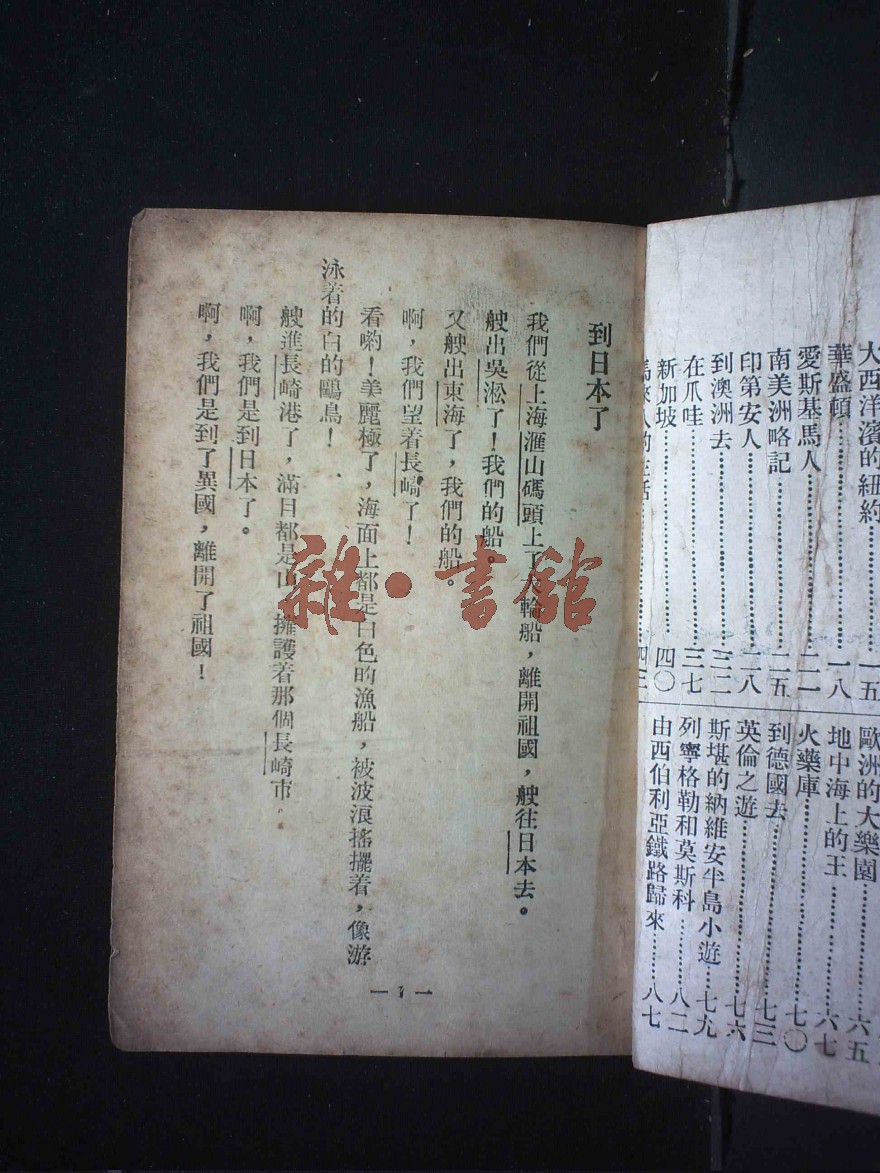 大西洋濱的紐約……一五
華盛頓……一八
愛斯基馬人……二一
南美洲略記……二五
印第安人……二八
到澳洲去……三二
在爪哇……三七
新加坡……四〇
歐洲的大樂園……六五
地中海上的王……六七
火藥庫……七〇
到德國去……七三
英倫之遊……七六
斯堪的納維安半島小遊……七九
列寧格勒和莫斯科……八二
由西伯利亞鐵路歸來……八七
到日本了
我們從上海滙山碼頭上了輪船，離開祖國，艘往日本去。
艘出吳淞了！我們的船。
又艘出東海了，我們的船。
啊，我們望着長崎了！
看喲！美麗極了，海面上都是白色的漁船，被波浪搖擺着，像游
泳着的白的鷗鳥！
艘進長崎港了，滿目都是山，擁護着那個長崎市。
啊，我們是到日本了。
啊，我們是到了異國，離開了祖國！
— 1 —
雜·書館